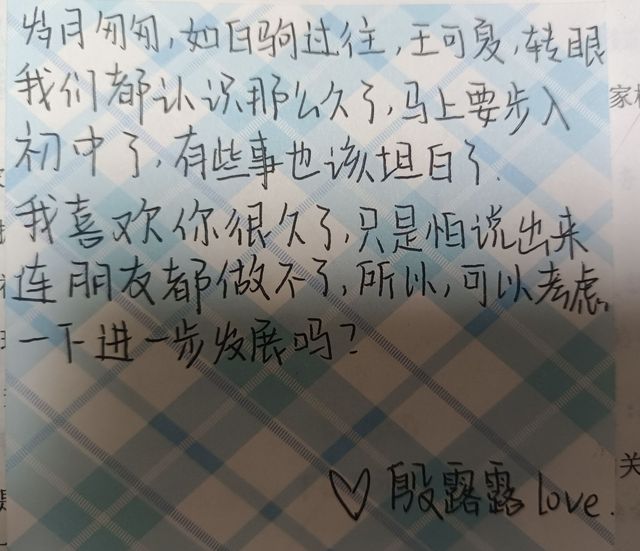 岁月匆匆,如白驹过往,王可夏,转眼
我们都认识那么久了,马上要步入
初中了,有些事也该坦白了.
我喜欢你很久了,只是怕说出来
连朋友都做不了,所以,可以考虑
一下进一步发展吗?
♡ 殷露露 love.
家
关